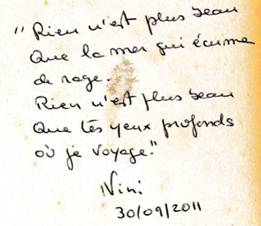 "Rien n'est plus beau
Que la mer qui écume
de rage.
Rien n'est plus beau
Que tes yeux profonds
où je voyage."
Nini
30/09/2011